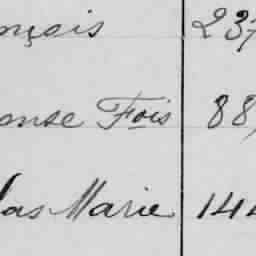 nçois 237
onse Fois 88
las Marie 144